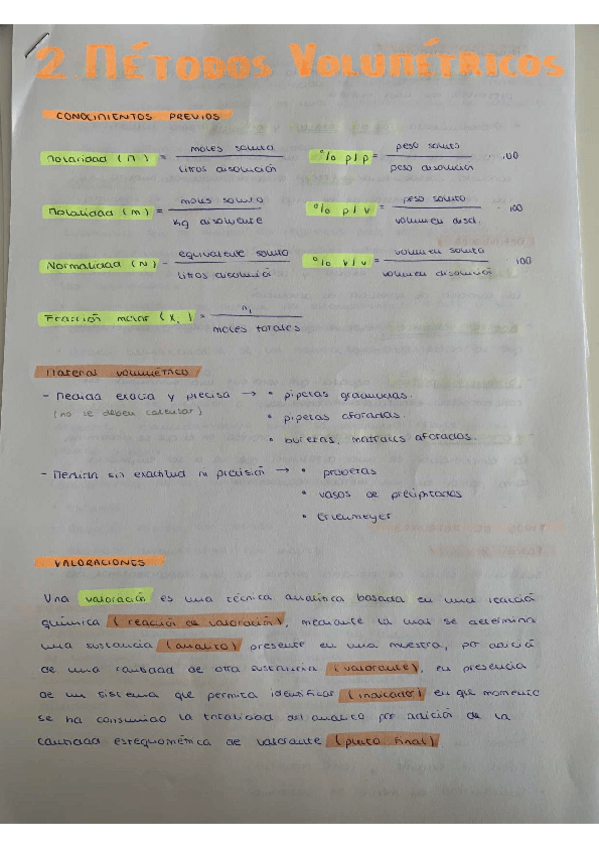 2. MÉTODOS VOLUMÉTRICOS
CONOCIMIENTOS PREVIOS
Molaridad (M) = moles soluto / litros disolución
% p/p = peso soluto / peso disolución · 100
Molalidad (m) = moles soluto / kg disolvente
% p/v = peso soluto / volumen disol. · 100
Normalidad (N) = equivalente soluto / litros disolución
% v/v = volumen soluto / volumen disolución 100
Fracción molar (Xi) = ni / moles totales
Material volumétrico
- Medida exacta y precisa → • pipetas graduadas.
(no se deben calentar) • pipetas aforadas.
• buretas, matraces aforados.
- Medida sin exactitud ni precisión → • probetas
• vasos de precipitados
• Erlenmeyer
VALORACIONES
Una valoración es una técnica analítica basada en una reacción
química (reacción de valoración), mediante la cual se determina
una sustancia (analito) presente en una muestra, por adición
de una cantidad de otra sustancia (valorante), en presencia
de un sistema que permita identificar (indicador) en que momento
se ha consumido la totalidad del analito por adición de la
cantidad estequiométrica de valorante (punto final)